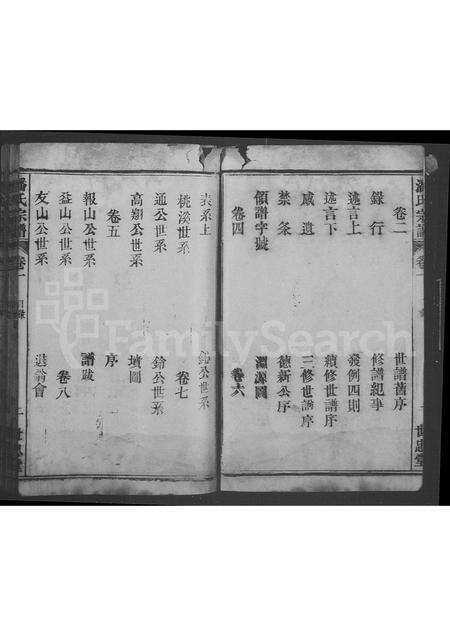 潘氏宗譜 卷一
卷二
錄行 世譜舊序
遠言上 修譜紀事
遠言下 發例四則
咸遺 續修世譜序
禁条 三修世譜序
領譜字號 德新公序
卷四 淵源圖
卷六
表系上
桃溪世系 鉛公世系
通公世系 卷七
高翔公世系 鈴公世系
卷五 墳圖
報山公世系 序
益山公世系 譜跋
友山公世系 卷八
選翁會
潘氏宗譜 卷一 目錄 一 世恩堂
FamilySearch